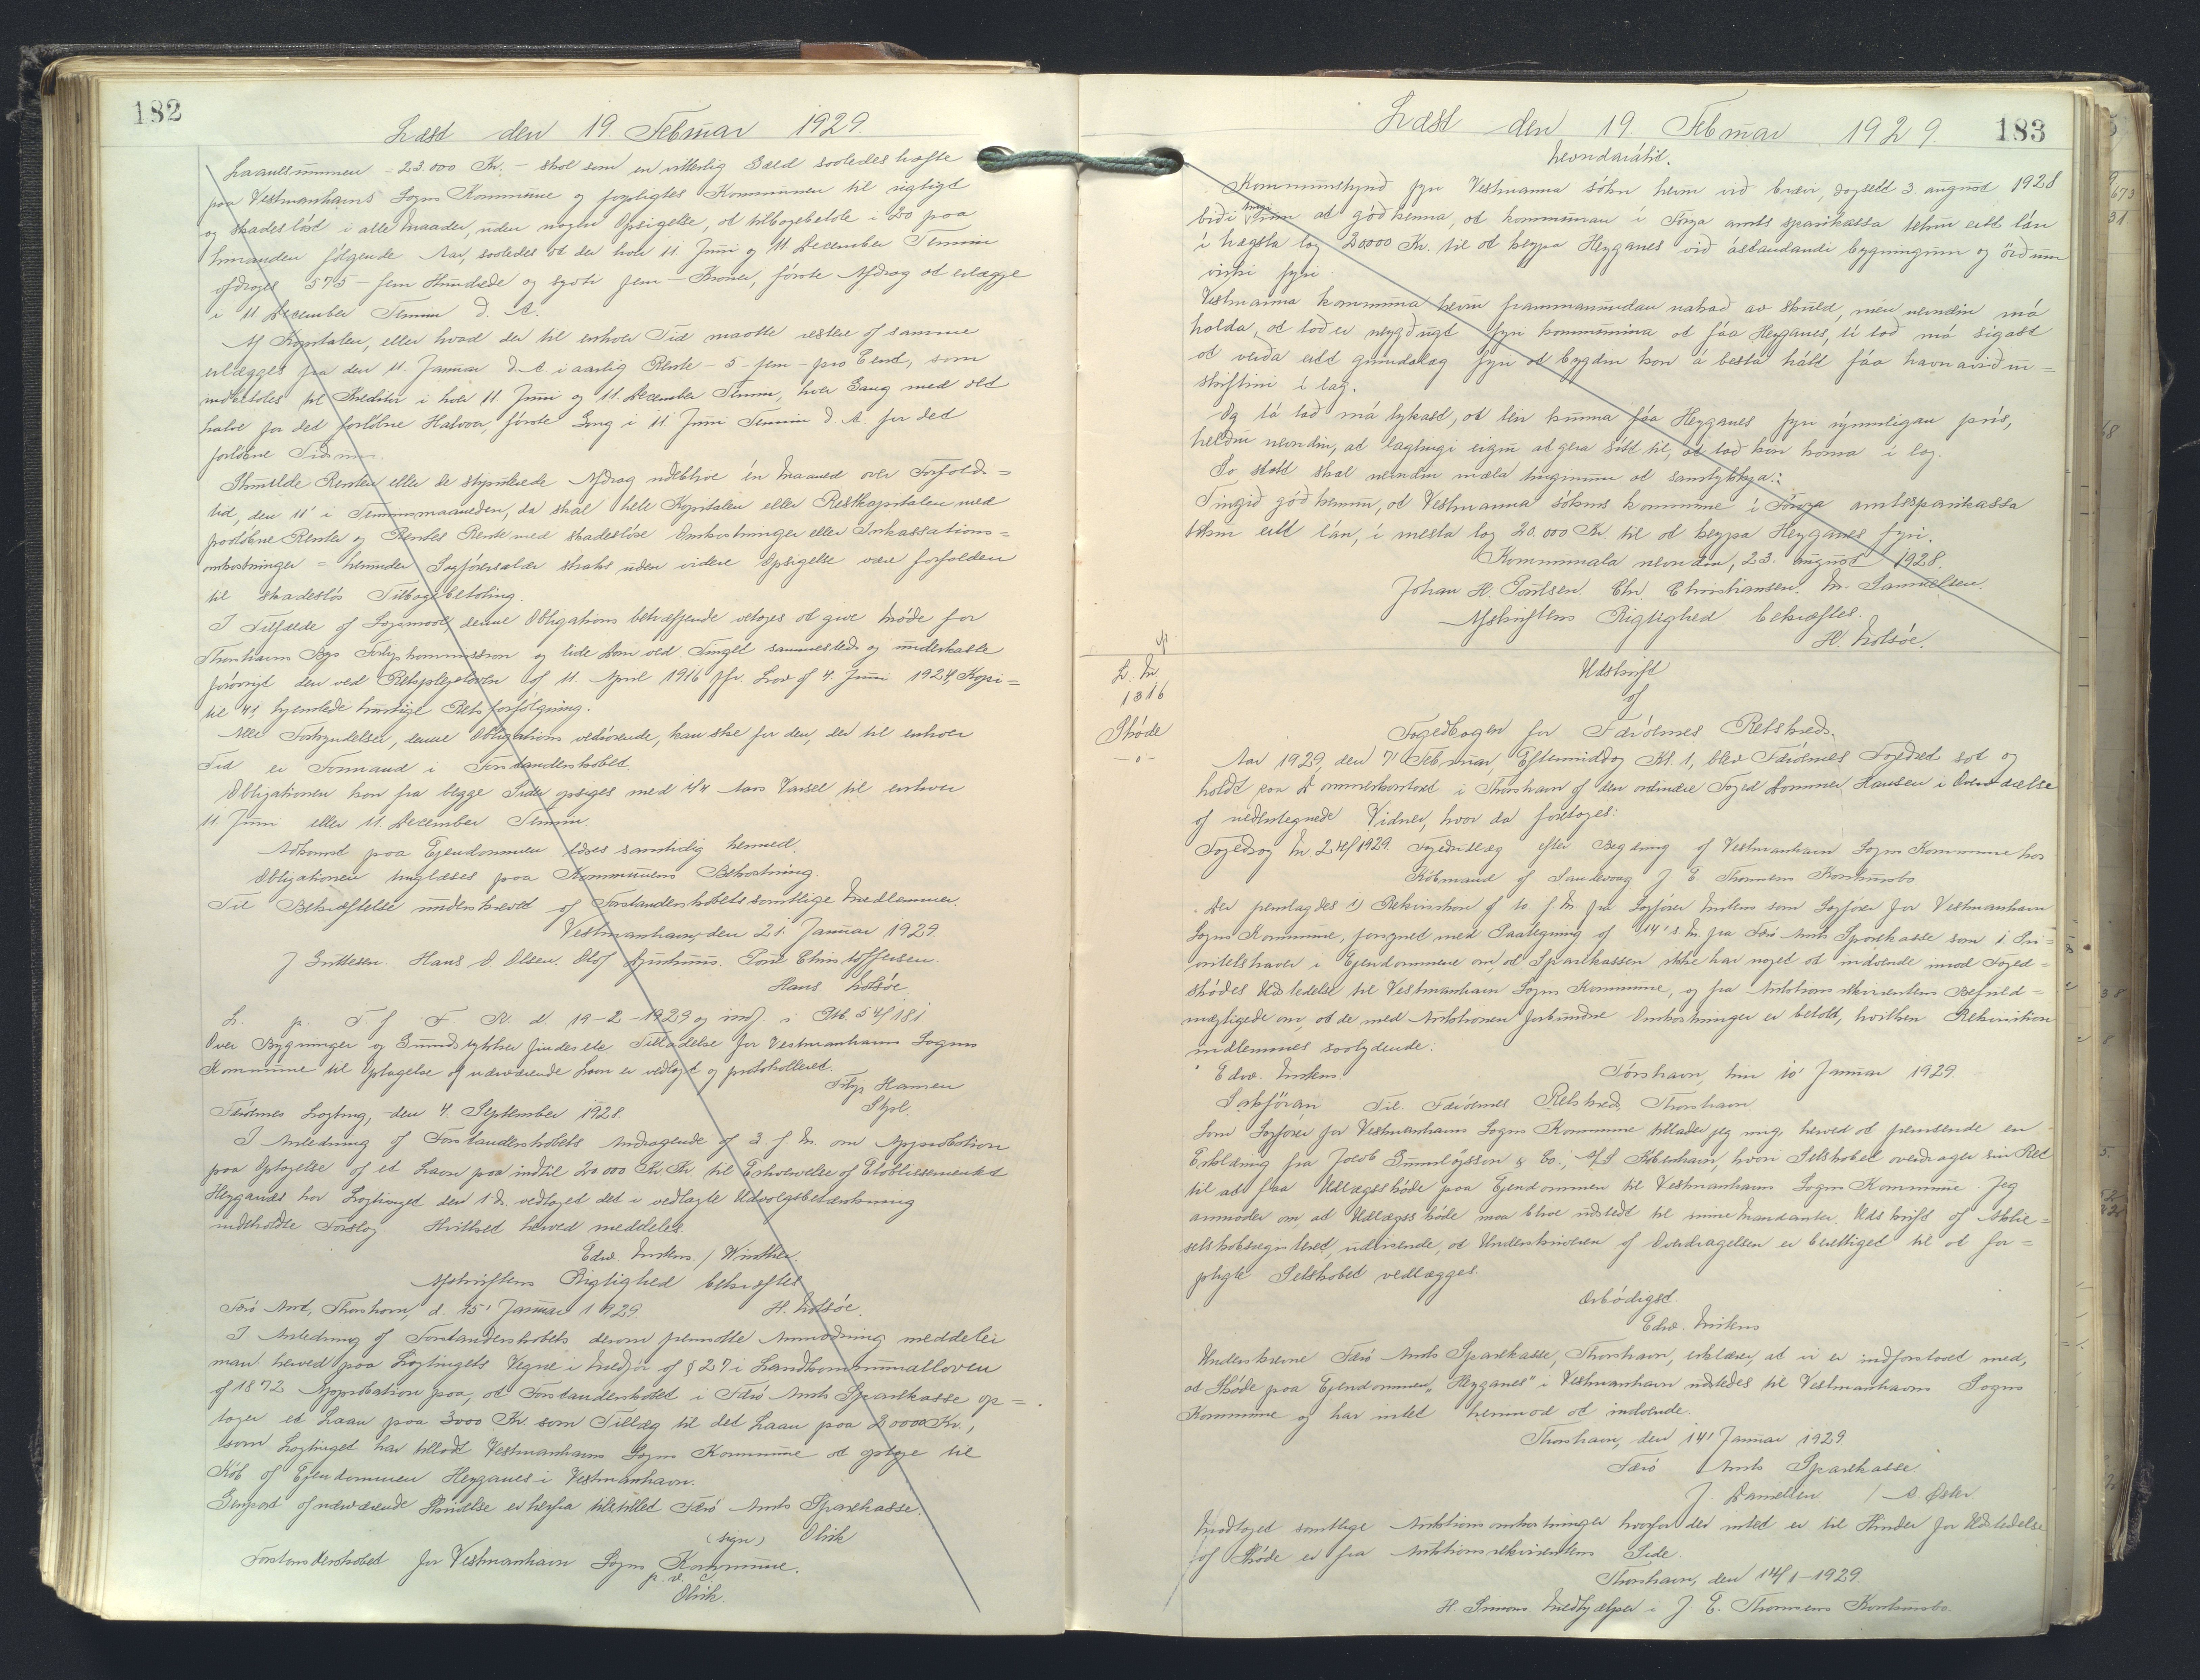 182
Læst den 19. Februar 1929.
Laanesummen = 23.000 Kr. - skal som en vitterlig Gæld saaledes hæfte
paa Vestmanhavns Sogns Kommune og forpligtes Kommunen til rigtigt
og skadesløst i alle Maader, uden nogen Opsigelse, at tilbagebetale i 20 paa
hinanden følgende Aar, saaledes at der hver 11. Juni og 11. December Termin
afdrages 575 - fem Hundrede og syvti fem - Kroner, første Afdrag at erlægge
i 11 December Termin d. A.
Af Kapitalen, eller hvad der til enhver Tid maatte restere af samme
erlægges fra den 11. Januar d. A. i aarlig Rente - 5 - fem - pro Cent, som
indbetales til Kreditor i hver 11 Juni og 11. December Termin, hver Gang med det
halve for det forløbne Halvaar, første Gang i 11 Juni Termin d A. for det
forløbne Tidsrum.
Skulde Renten eller de stipulerede Afdrag udeblive én Maaned over Forfalds=
tid, den 11' i Terminsmaaneden, da skal hele Kapitalen eller Restkapitalen med
paaløbne Renter og Renters Rente med skadesløse Omkostninger eller Inkassations=
omkostninger = herunder Sagførersalær straks uden videre Opsigelse være forfalden
til skadesløs Tilbagebetaling.
I Tilfælde af Søgsmaal, denne Obligations betræffende vetages at give Møde for
Thorshavns Bys Forligskommission og lide Dom ved Tinget sammesteds og underkaste
forøvrigt den ved Retsplejeloven af 11. April 1916 jfr. Lov af 4 Juni 1924, Kapi=
tel 41, hjemlede hurtige Retsforfølgning.
Alle Forkyndelser, denne Obligations vedrørende, kan ske for den, der til enhver
Tid er Formand i Forstanderskabet
Obligationen kan fra begge Sider opsiges med 1/4 Aars Varsel til enhver
11 Juni eller 11. December Termin.
Adkomst paa Ejendommen læses samtidig hermed.
Obligationen tinglæses paa Kommunens Bekostning.
Til Bekræftelse underskrevet af Forstanderskabets samtlige Medlemmer.
Vestmanhavn, den 21. Januar 1929.
J Guttesen. Hans D. Olsen. Olof Poul Christoffersen.
Hans Lotsöe.
L. p. T. f F. R. d 19-2-1929 og indf. i Ptb. 54/181
Over Bygninger og Grundstykker findes Tilladelse for Vestmanhavns Sogns
Kommune til Optagelse af nærværende Laan er vedlagt og protokolleret.
Filip Hansen
Styrl.
Færöernes Lagting, den 4. September 1928.
I Anledning af Forstanderskabets Andragende af 3. f. M. om Approbation
paa Optagelse af et Laan paa indtil 20.000 Kr til Erhvervelse af Etablissementet
Heyganes har Lagtinget den 1 ds. vedtaget det i vedlagte Udvalgsbetænkning
indeholdte Forslag. Hvilket herved meddeles.
Edw. Mitens. / Winther
Afskriftens Rigtighed bekræftes
H. Lotsöe.
Færö Amt, Thorshavn, d. 15' Januar 1929.
I Anledning af Forstanderskabets derom fremsatte Anmodning meddeler
man herved paa Lagtingets Vegne i Medfør af § 27 i Landkommunalloven
af 1872 Approbation paa, at Forstanderskabet i Færö Amts Sparekasse op=
tager et Laan paa 3000 Kr. som Tillæg til det Laan paa 20000 Kr.,
som Lagtinget har tilladt Vestmanhavns Sogns Kommune at optage til
Køb af Ejendommen Heyganes i Vestmanhavn.
Genpart af nærværende Skrivelse er herfra tilstillet Færö Amts Sparekasse.
(sign) Olrik
Forstanderskabet for Vestmanhavn Sogns Kommune.
p. v. c
Olrik.
183
Læst den 19. Februar 1929.
Nevndarálit.
Kommunustýrið fyri Vestmanna sókn hevur við brævi, dagsett 3. august 1928
biðið tingið um at góðkenna, at kommunan í Føroya amts sparikassa tekur eitt lán
í hægsta lag 20000 Kr. til at keypa Heyganes við ástandandi bygningum og øðrum
virki fyri.
Vestmanna kommuna hevur frammanundan nakað av skuld, men nevndin má
halda, at tað er neyðugt fyri kommununa at fáa Heyganes, tí tað má sigast
at verða eitt grundalag fyri at bygdin kan á besta hátt fáa havnaviður=
skiftini í lag.
Og tá tað má tykjast, at teir kunna fáa Heyganes fyri rýmiligan prís,
heldur nevndin, at lagtingið eigur at gera sítt til, at tað kan koma í lag.
So statt skal nevndin mæla tinginum at samtykkja:
Tingið góðkennur, at Vestmanna sóknar kommuna í Føroya amtssparikassa
tekur eitt lán, í mesta lag 20.000 Kr. til at keypa Heyganes fyri.
Kommunala nevndin, 23. august 1928.
Johan H. Poulsen. Chr. Christiansen. M. Samuelsen.
Afskriftens Rigtighed bekræftes.
H. Lotsöe.
L. Nr
1316
Skøde
-o-
Udskrift
af
Fogedbogen for Færöernes Retskreds.
Aar 1929, den 7' Februar, Eftermiddag Kl. 1, blev Færöernes Fogedret sat og
holdt paa Dommerkontoret i Thorshavn af den ordinære Foged Dommer Hansen i Overværelse
af nedentegnede Vidner, hvor da foretoges:
Fogedsag Nr. 24/1929. Fogedudlæg efter Begæring af Vestmanhavn Sogns Kommune hos
Købmand af Sandevaag J. E. Thomsens Konkursbo
Der fremlagdes 1) Rekvisition af 10. f. M. fra Sagfører Mitens som Sagfører for Vestmanhavn
Sogns Kommune, forsynet med Paategning af 14' s. M. fra Færö Amts Sparekasse som 1. Pri=
oritetshaver i Ejendommene om, at Sparekassen ikke har noget at indvende imod Foged=
skødets Udstedelse til Vestmanhavn Sogns Kommune, og fra Auktionsrekvirentens Befuld=
mægtigede om, at de med Auktionen forbundne Omkostninger er betalt, hvilken Rekvisition
indlemmes saalydende:
" Edw. Mitens. Tórshavn, tann 10' Januar 1929.
Sakførari Til Færöernes Retskreds, Thorshavn
Som Sagfører for Vestmanhavns Sogns Kommune tillader jeg mig herved at fremsende en
Erklæring fra Jacob Gunnlögsson & Co., A/S København, hvori Selskabet overdrager sin Ret
til at faa Udlægsskøde paa Ejendommen til Vestmanhavns Sogns Kommune. Jeg
anmoder om, at Udlægsskøde maa blive udstedt til mine Mandanter. Udskrift af Aktie=
selskabsregisteret, udvisende, at Underskriveren af Overdragelsen er berettiget til at for=
pligte Selskabet vedlægges.
Ærbödigst
Edw. Mitens
Underskrevne Færö Amts Sparekasse, Thorshavn, erklærer, at vi er indforstaaet med,
at Skøde paa Ejendommen "Heyganes" i Vestmanhavn udstedes til Vestmanhavns Sogns
Kommune og har intet herimod at indvende.
Thorshavn, den 14' Januar 1929
Færö Amts Sparekasse
J. Danielsen / A. Øster
Modtaget samtlige Auktionsomkostninger hvorfor der intet er til Hinder for Udstedelse
af Skøde er fra Auktionsrekvirentens Side.
Thorshavn, den 14/1-1929.
H. Simons. Medhjælper i J. E. Thomsens Konkursbo.